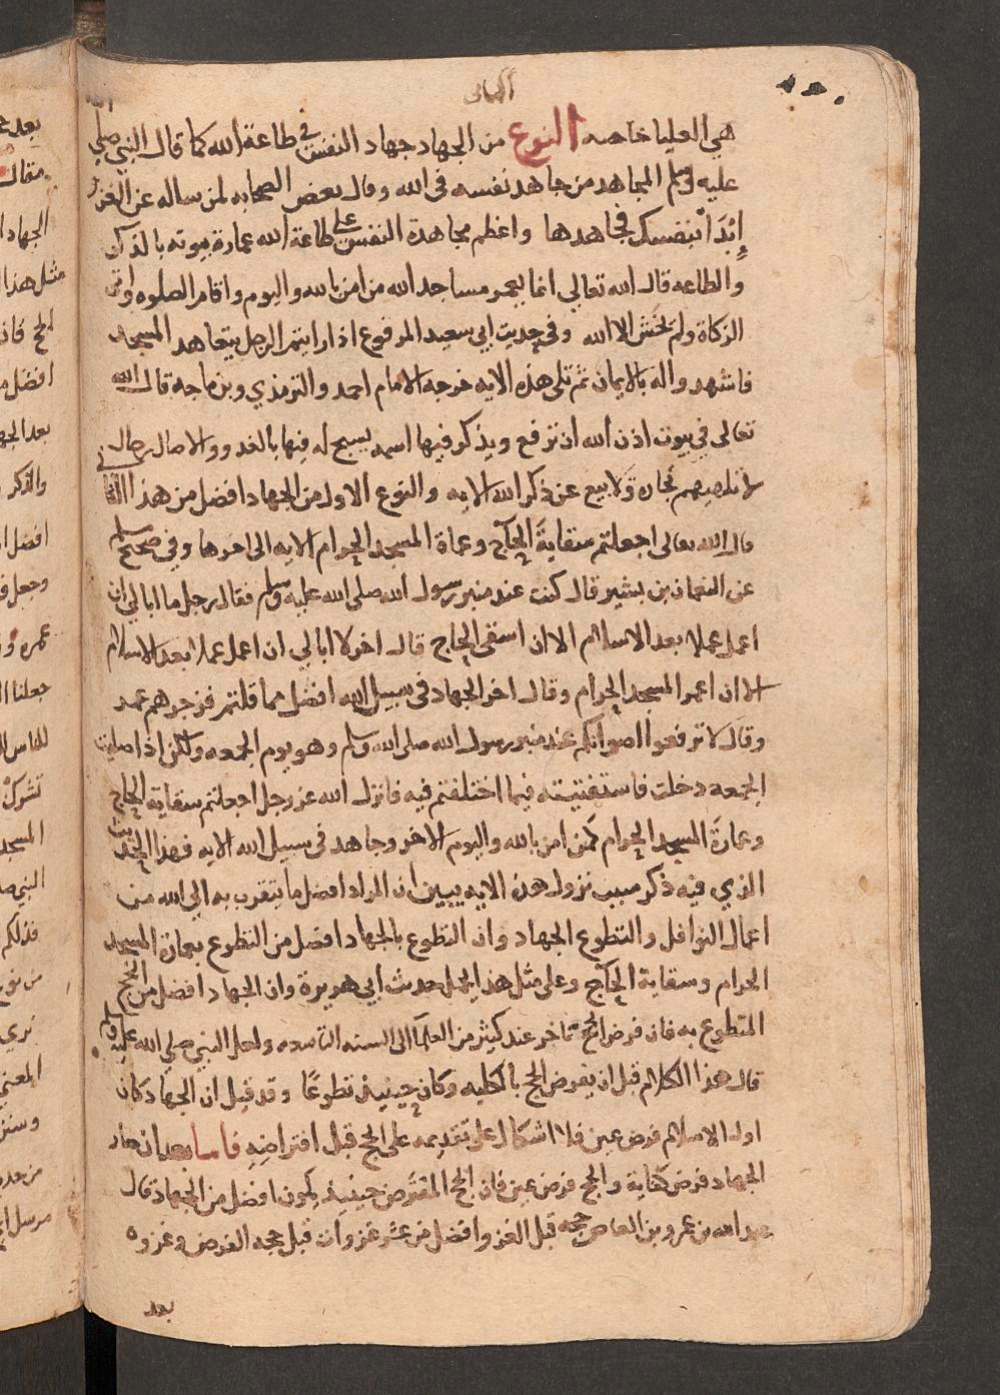 الثاني
هي العليا خاصه النوع من الجهاد جهاد النفس في طاعة الله كما قال النبي صلي الله
عليه وسلم المجاهد من جاهد نفسه في الله وقال بعض الصحابه لمن ساله عن الغزو
إبْدَأ بنفسك فجاهدها واعظم مجاهدة النفس على طاعة الله عمارة بيوته بالذكر
والطاعه قال الله تعالي انما يعمر مساجد الله من امن بالله واليوم واقام الصلوه واتى
الزكاة ولم يخش الا الله وفي حديث ابي سعيد المرفوع اذا رايتم الرجل يتعاهد المسجد
فاشهدوا له بالايمان ثم تلى هذه الايه خرجه الامام احمد والترمذي وبن ماجه قال الله
تعالى في بيوت اذن الله ان ترفع ويذكر فيها اسمه يسبح له فيها بالغدو والاصال رجال
لا تلهيهم تجارة وَلا بيع عن ذكر الله الايه والنوع الاول من الجهاد افضل من هذا الثاني
قال الله تعالى اجعلتم سقايةَ الحآج وعماة المسجد الحرام الايه الى اخرها وفي صحيح مسلم
عن النعمان بن بشير قال كنت عند منبر رسول الله صلى الله عليه وسلم فقال رجل ما ابالي ان
اعمل عملا بعد الاسلام الا ان اسقى الحاج قال اخر لا ابالي ان اعمل عملا بعد الاسلام
الا ان اعمر المسجد الحرام وقال اخر الجهاد في سبيل الله افضل مما قلتم فزجرهم عمر
وقال لا ترفعوا اصواتكم عند منبر رسول الله صلى الله وسلم وهو يوم الجمعه ولكن اذا صليت
الجمعه دخلت فاستفتيته فيما اختلفتم فيه فانزل الله عز وجل اجعلتم سقاية الحاج
وعمارَة المسجد الحرام كمن امن بالله واليوم الاخر وجاهد في سبيل الله الايه فهذا الحديث
الذي فيه ذكر سبب نزول هذه الايه يبين ان المراد افضل ما يتقرب به الي الله من
اعمال النوافل والتطوع الجهاد وان التطوع بالجهاد افضل من التطوع بعمارة المسجد
الحرام وسقاية الحآج وعلى مثل هذا يحمل حديث ابي هريرة وان الجهاد افضل من الحج
المتطوع به فان فرض الحج تاخر عند كثير من العلمآ الى السنه التاسعه ولعل النبي صلي الله عليه وسلم
قال هذا الكلام قبل ان يفرض الحج بالكليه وكان حينيذ تطوعًا وقد قيل ان الجهاد كان
اول الاسلام فرض عين فلا اشكال على تقديمه على الحج قبل افتراضِهِ فاما بعد ان صار
الجهاد فرض كفاية والحج فرض عين فان الحج المفترض حينيذ يكون افضل من الجهاد قال
عبد الله بن عمرو بن العاص حجه قبل الغزو افضل من عشر غزوات قبل حجه الفرض وغزوه
بعد